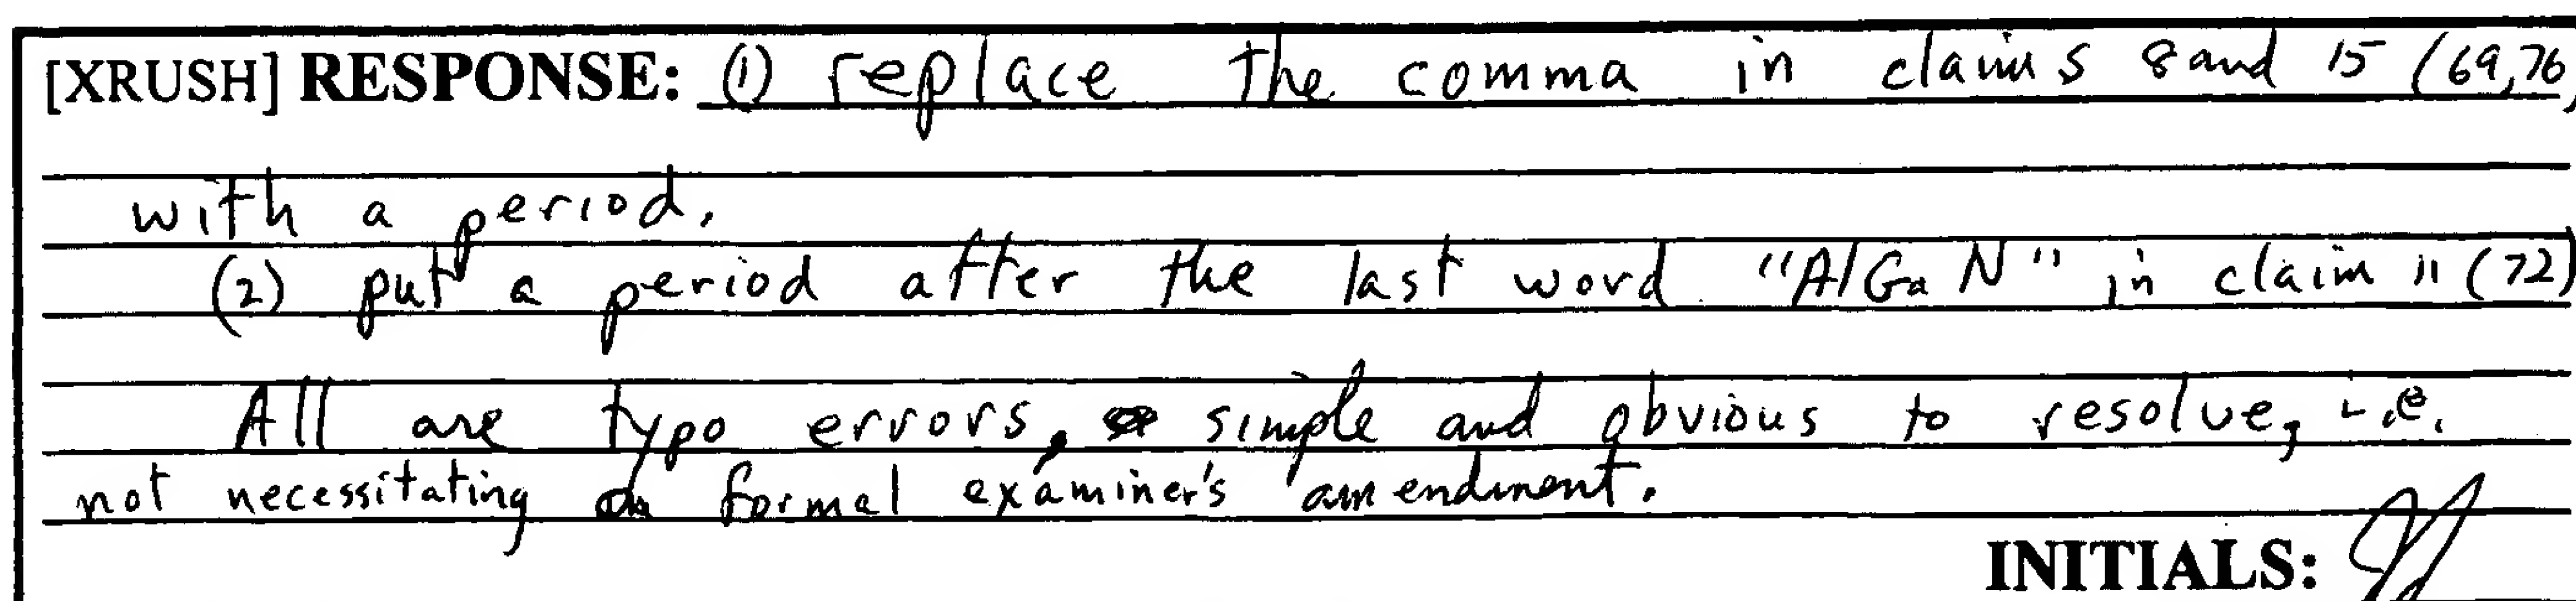 [XRUSH] RESPONSE: (1) replace the comma in claims 8 and 15 (69,76)
with a period.
(2) put a period after the last word "AlGaN" in claim 11 (72)
All are typo errors, simple and obvious to resolve, i.e.
not necessitating a formal examiner's amendment.
INITIALS: